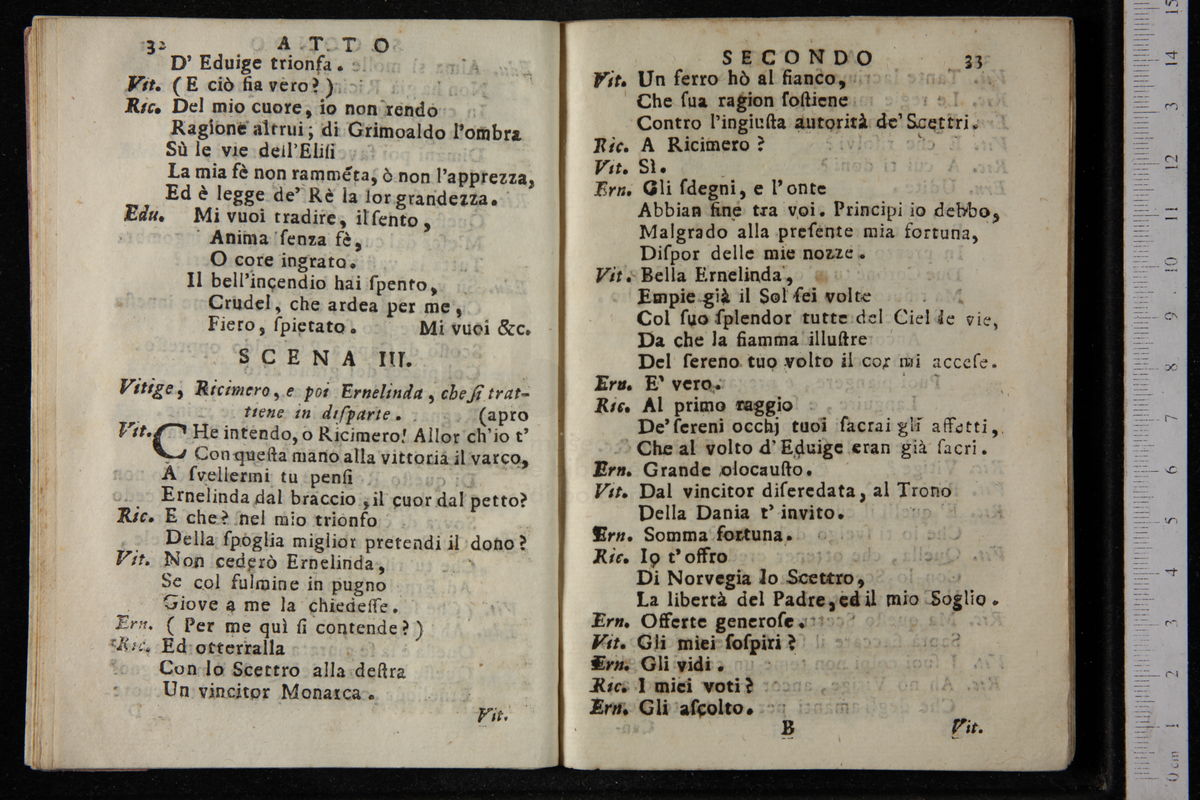 32 ATTO
D' Eduige trionfa.
Vit. (E ciò fia vero?)
Ric. Del mio cuore, io non rendo
Ragione altrui; di Grimoaldo l'ombra
Sù le vie dell'Elisi
La mia fè non rammẽta, ò non l'apprezza,
Ed è legge de' Rè la lor grandezza.
Edu. Mi vuoi tradire, il sento,
Anima senza fè,
O core ingrato.
Il bell'incendio hai spento,
Crudel, che ardea per me,
Fiero, spietato. Mi vuoi &c.
SCENA III.
Vitige, Ricimero, e poi Ernelinda, che si trat-
tiene in disparte. (apro
Vit. CHe intendo, o Ricimero! Allor ch'io t'
Con questa mano alla vittoria il varco,
A svellermi tu pensi
Ernelinda dal braccio, il cuor dal petto?
Ric. E che? nel mio trionfo
Della spoglia miglior pretendi il dono?
Vit. Non cederò Ernelinda,
Se col fulmine in pugno
Giove a me la chiedesse.
Ern. (Per me quì si contende?)
Ric. Ed otterralla
Con lo Scettro alla destra
Un vincitor Monarca.
Vit.
SECONDO 33
Vit. Un ferro hò al fianco,
Che sua ragion sostiene
Contro l'ingiusta autorità de' Scettri.
Ric. A Ricimero?
Vit. Sì.
Ern. Gli sdegni, e l'onte
Abbian fine tra voi. Principi io debbo,
Malgrado alla presente mia fortuna,
Dispor delle mie nozze.
Vit. Bella Ernelinda,
Empie già il Sol sei volte
Col suo splendor tutte del Ciel le vie,
Da che la fiamma illustre
Del sereno tuo volto il cor mi accese.
Ern. E' vero.
Ric. Al primo raggio
De' sereni occhj tuoi sacrai gli affetti,
Che al volto d'Eduige eran già sacri.
Ern. Grande olocausto.
Vit. Dal vincitor diseredata, al Trono
Della Dania t' invito.
Ern. Somma fortuna.
Ric. Io t'offro
Di Norvegia lo Scettro,
La libertà del Padre, ed il mio Soglio.
Ern. Offerte generose.
Vit. Gli miei sospiri?
Ern. Gli vidi.
Ric. I miei voti?
Ern. Gli ascolto.
B Vit.
0 cm 1 2 3 4 5 6 7 8 9 10 11 12 3 14 15